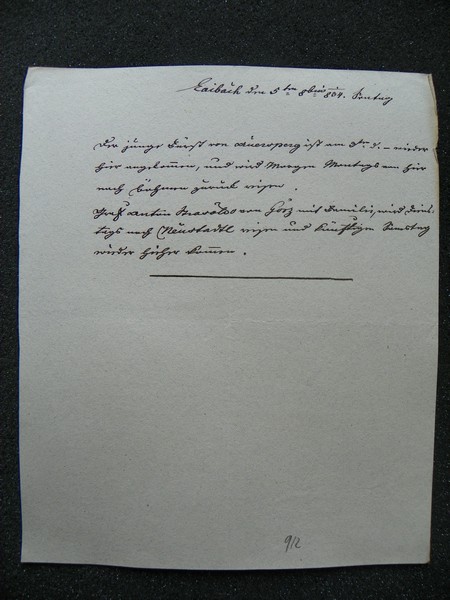 Laibach den 5ten 8bris 804. Sontag
Der junge Fürst von Auersperg ist am 3ten d. – wieder
hier angekommen, und wird Morgen Montags von hier
nach Böhmen zurück reisen.
Graf Anton von Görz mit Familie, wird Diens-
tags nach Neustadtl reisen und künftigen Samstag
wieder hieher kommen.
912